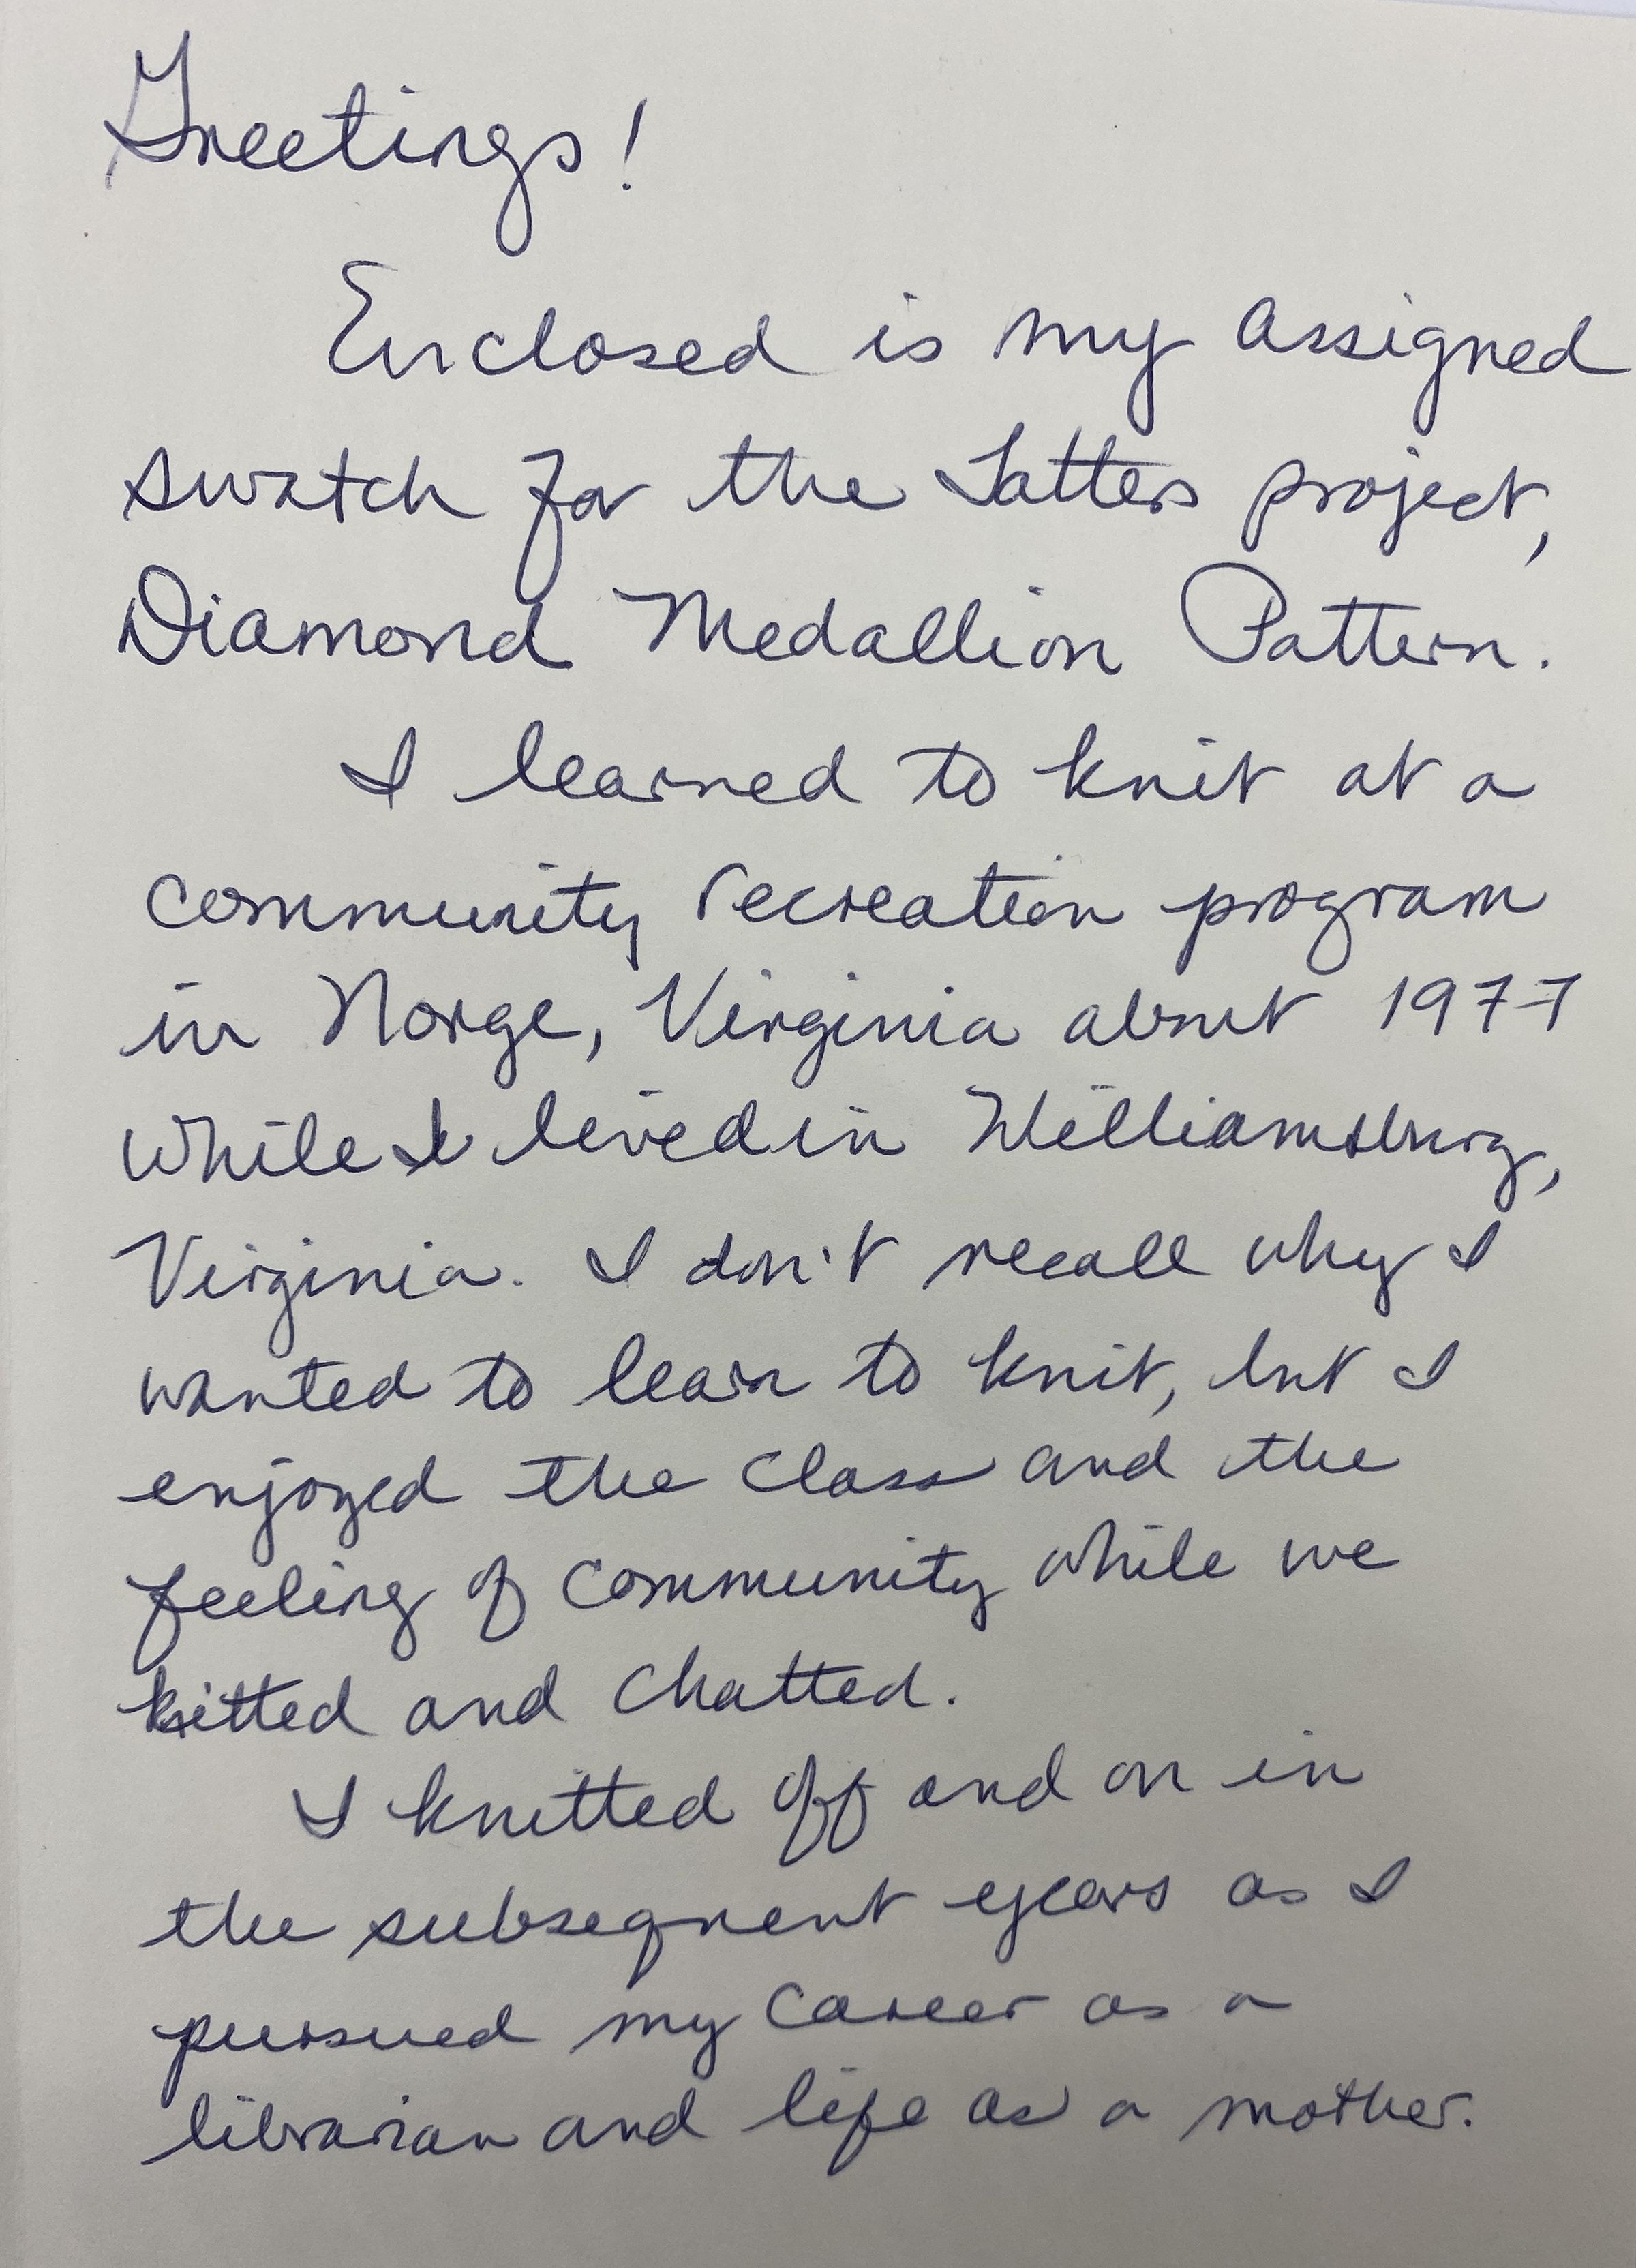 Greetings!
Enclosed is my assigned
swatch for the Latters project,
Diamond Medallion Pattern.
I learned to knit at a
community recreation program
in Norge, Virginia about 1977
while I lived in Williamsburg,
Virginia. I don't recall why I
wanted to learn to knit, but I
enjoyed the class and the
feeling of community while we
kitted and chatted.
I knitted off and on in
the subsequent years as I
pursued my career as a
librarian and life as a mother.